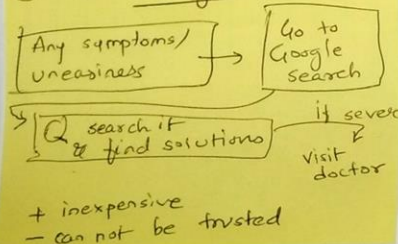 Any symptoms/
uneasiness
Go to
Google
search
Q search it
& find solutions
if severe
visit
doctor
+ inexpensive
- can not be trusted